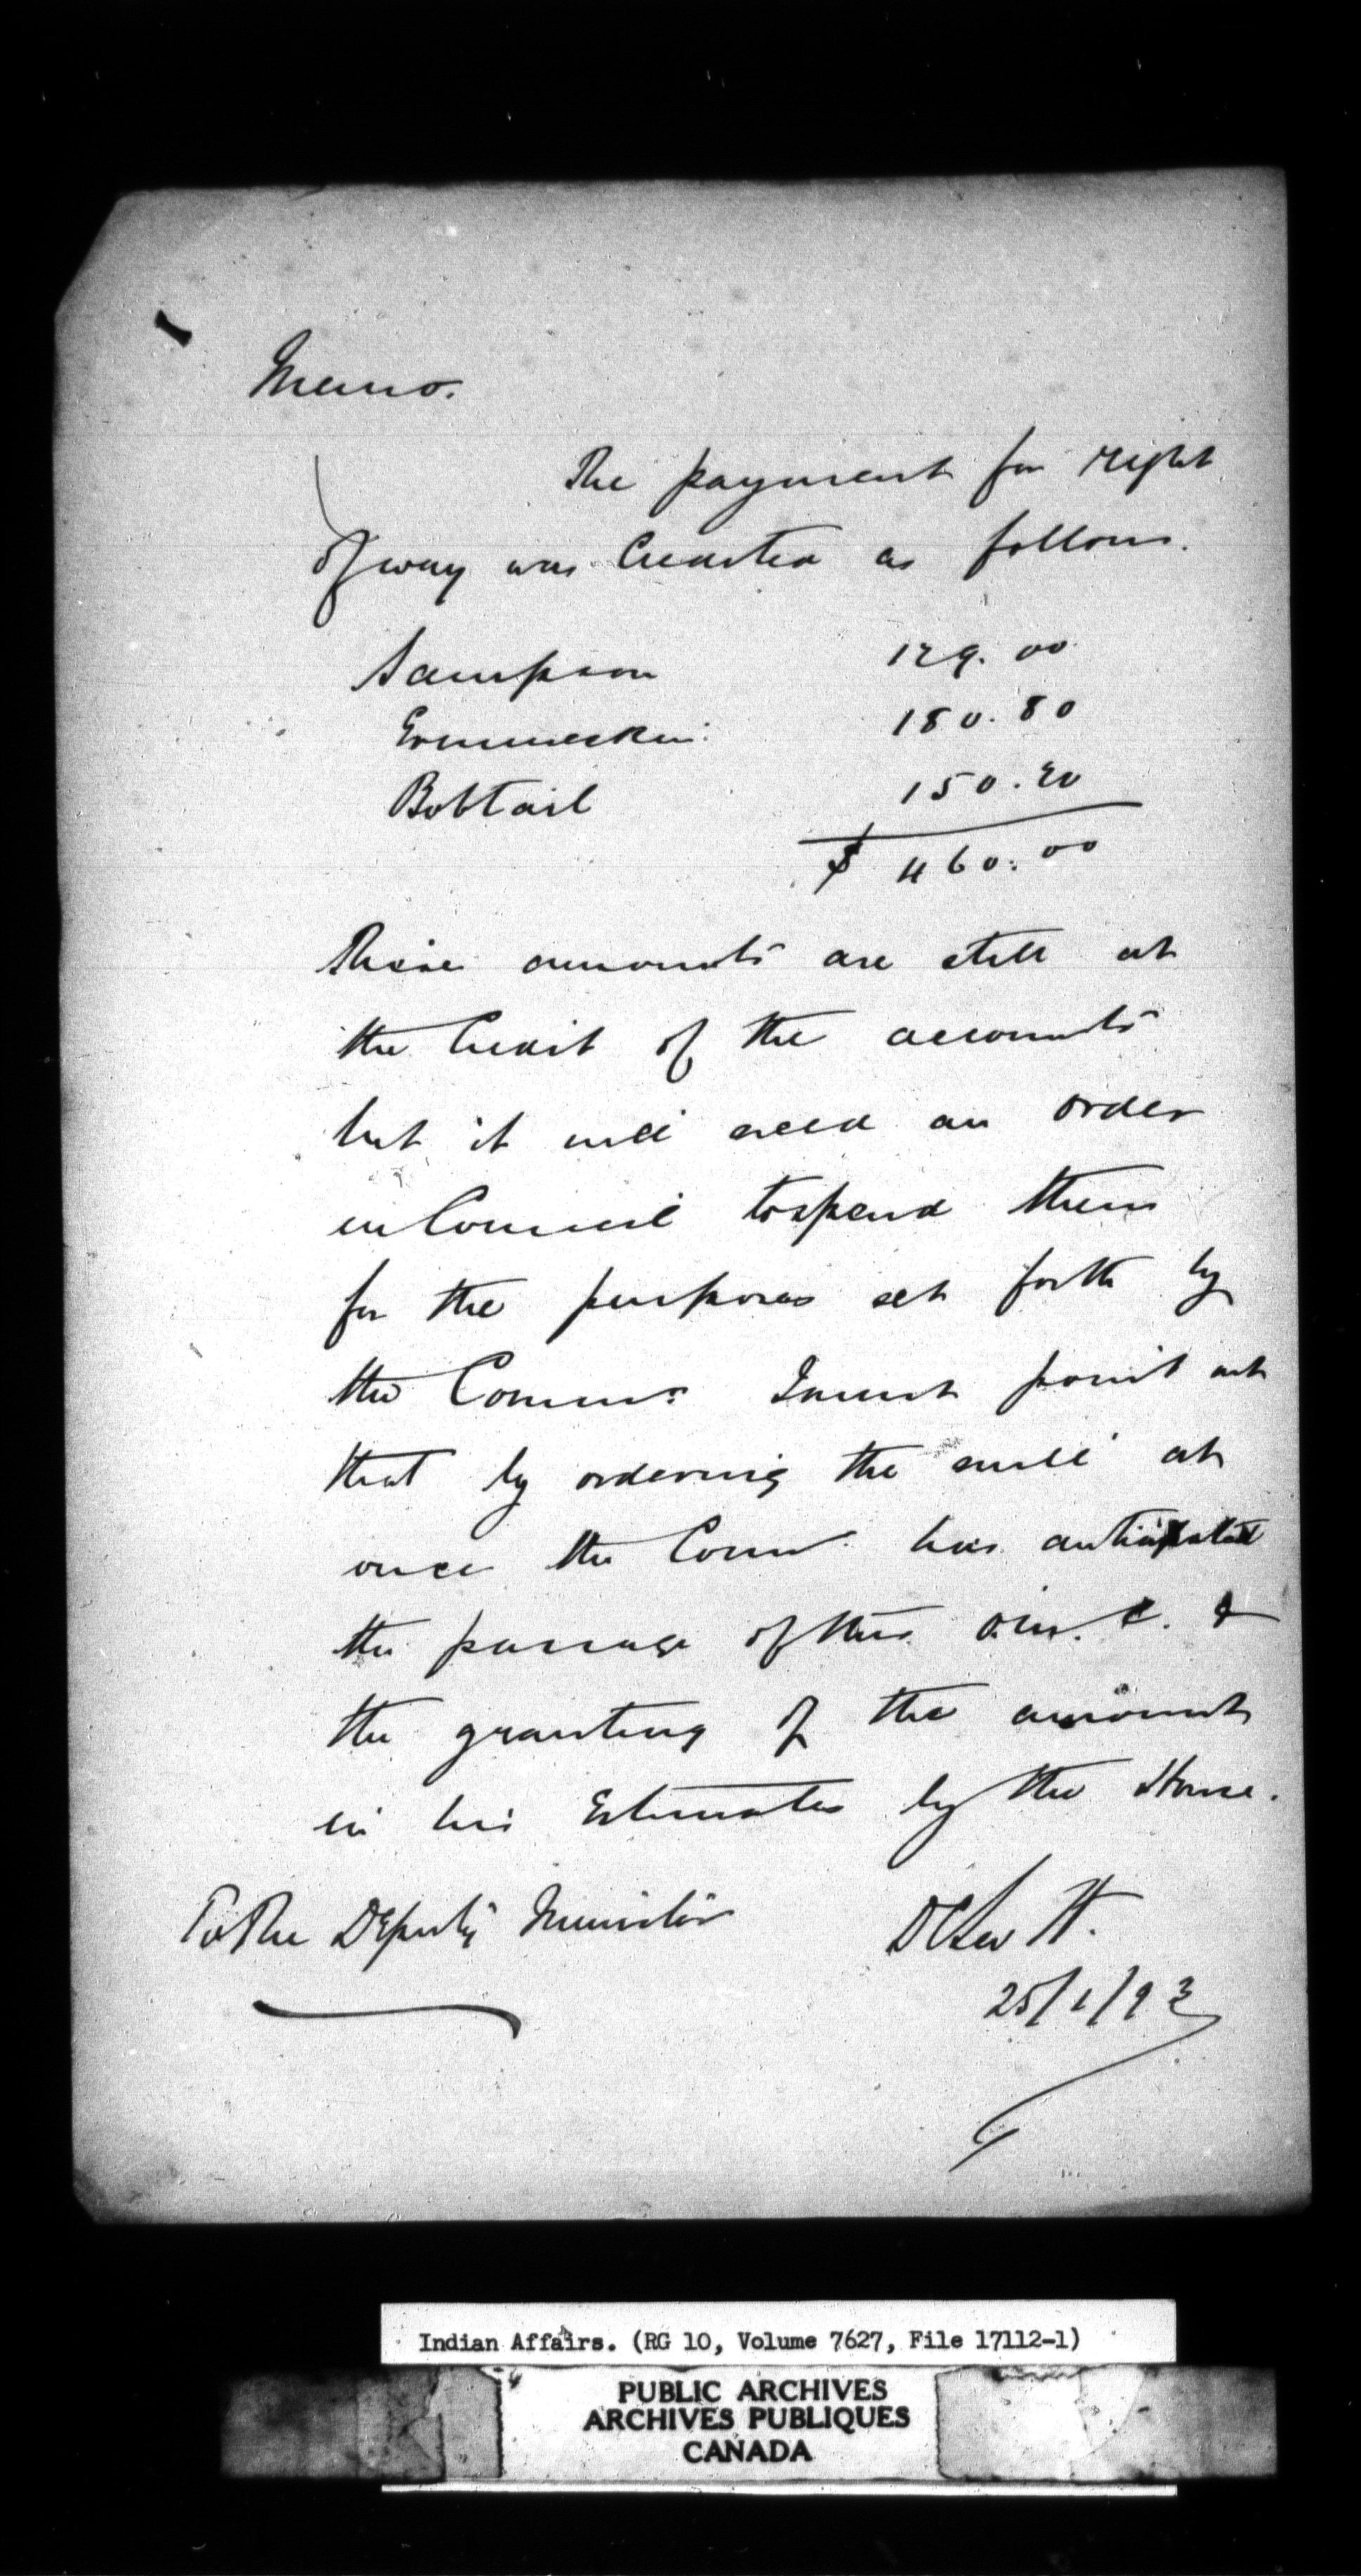 Memo.
The payment for right
of way was Credited as follows.
Sampson 129.00
Ermineskin 180.80
Bobtail 150.20
$ 460.00
These amounts are still at
the Credit of the accounts
but it will need an order
in Council to spend them
for the purposes set forth by
the Commr. I must point out
that by ordering the mill at
once the Comr. has anticipated
the passage of this O. in. C. &
the granting of the amount
in his Estimates by the House.
To The Deputy Minister
D C Scott.
25/1/93
Indian Affairs. (RG 10, Volume 7627, File 17112-1)
PUBLIC ARCHIVES
ARCHIVES PUBLIQUES
CANADA